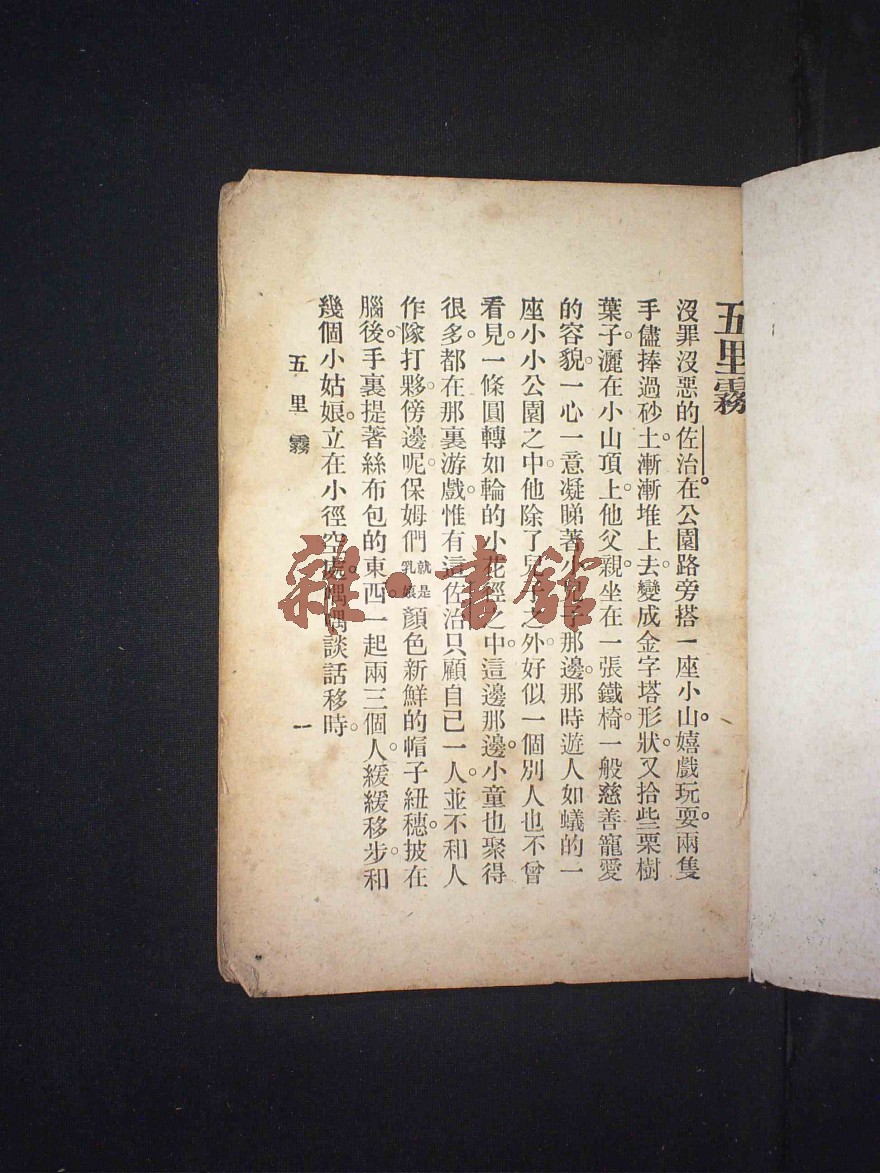 五里霧
沒罪沒惡的佐治。在公園路旁搭一座小山。嬉戲玩耍。兩隻
手儘捧過砂土。漸漸堆上去。變成金字塔形狀。又拾些栗樹
葉子。灑在小山頂上。他父親坐在一張鐵椅。一般慈善寵愛
的容貌。一心一意凝睇著小兒子那邊。那時遊人如蟻的一
座小小公園之中。他除了兒子之外。好似一個別人也不曾
看見。一條圓轉如輪的小花徑之中。這邊那邊。小童也聚得
很多。都在那裏游戲。惟有這佐治只顧自己一人。並不和人
作隊打夥。傍邊呢。保姆們就是乳娘顏色新鮮的帽子紐穗。披在
腦後。手裏提著絲布包的東西。一起兩三個人。緩緩移步。和
幾個小姑娘。立在小徑空處。喁喁談話移時。
五里霧
一
雜·書館